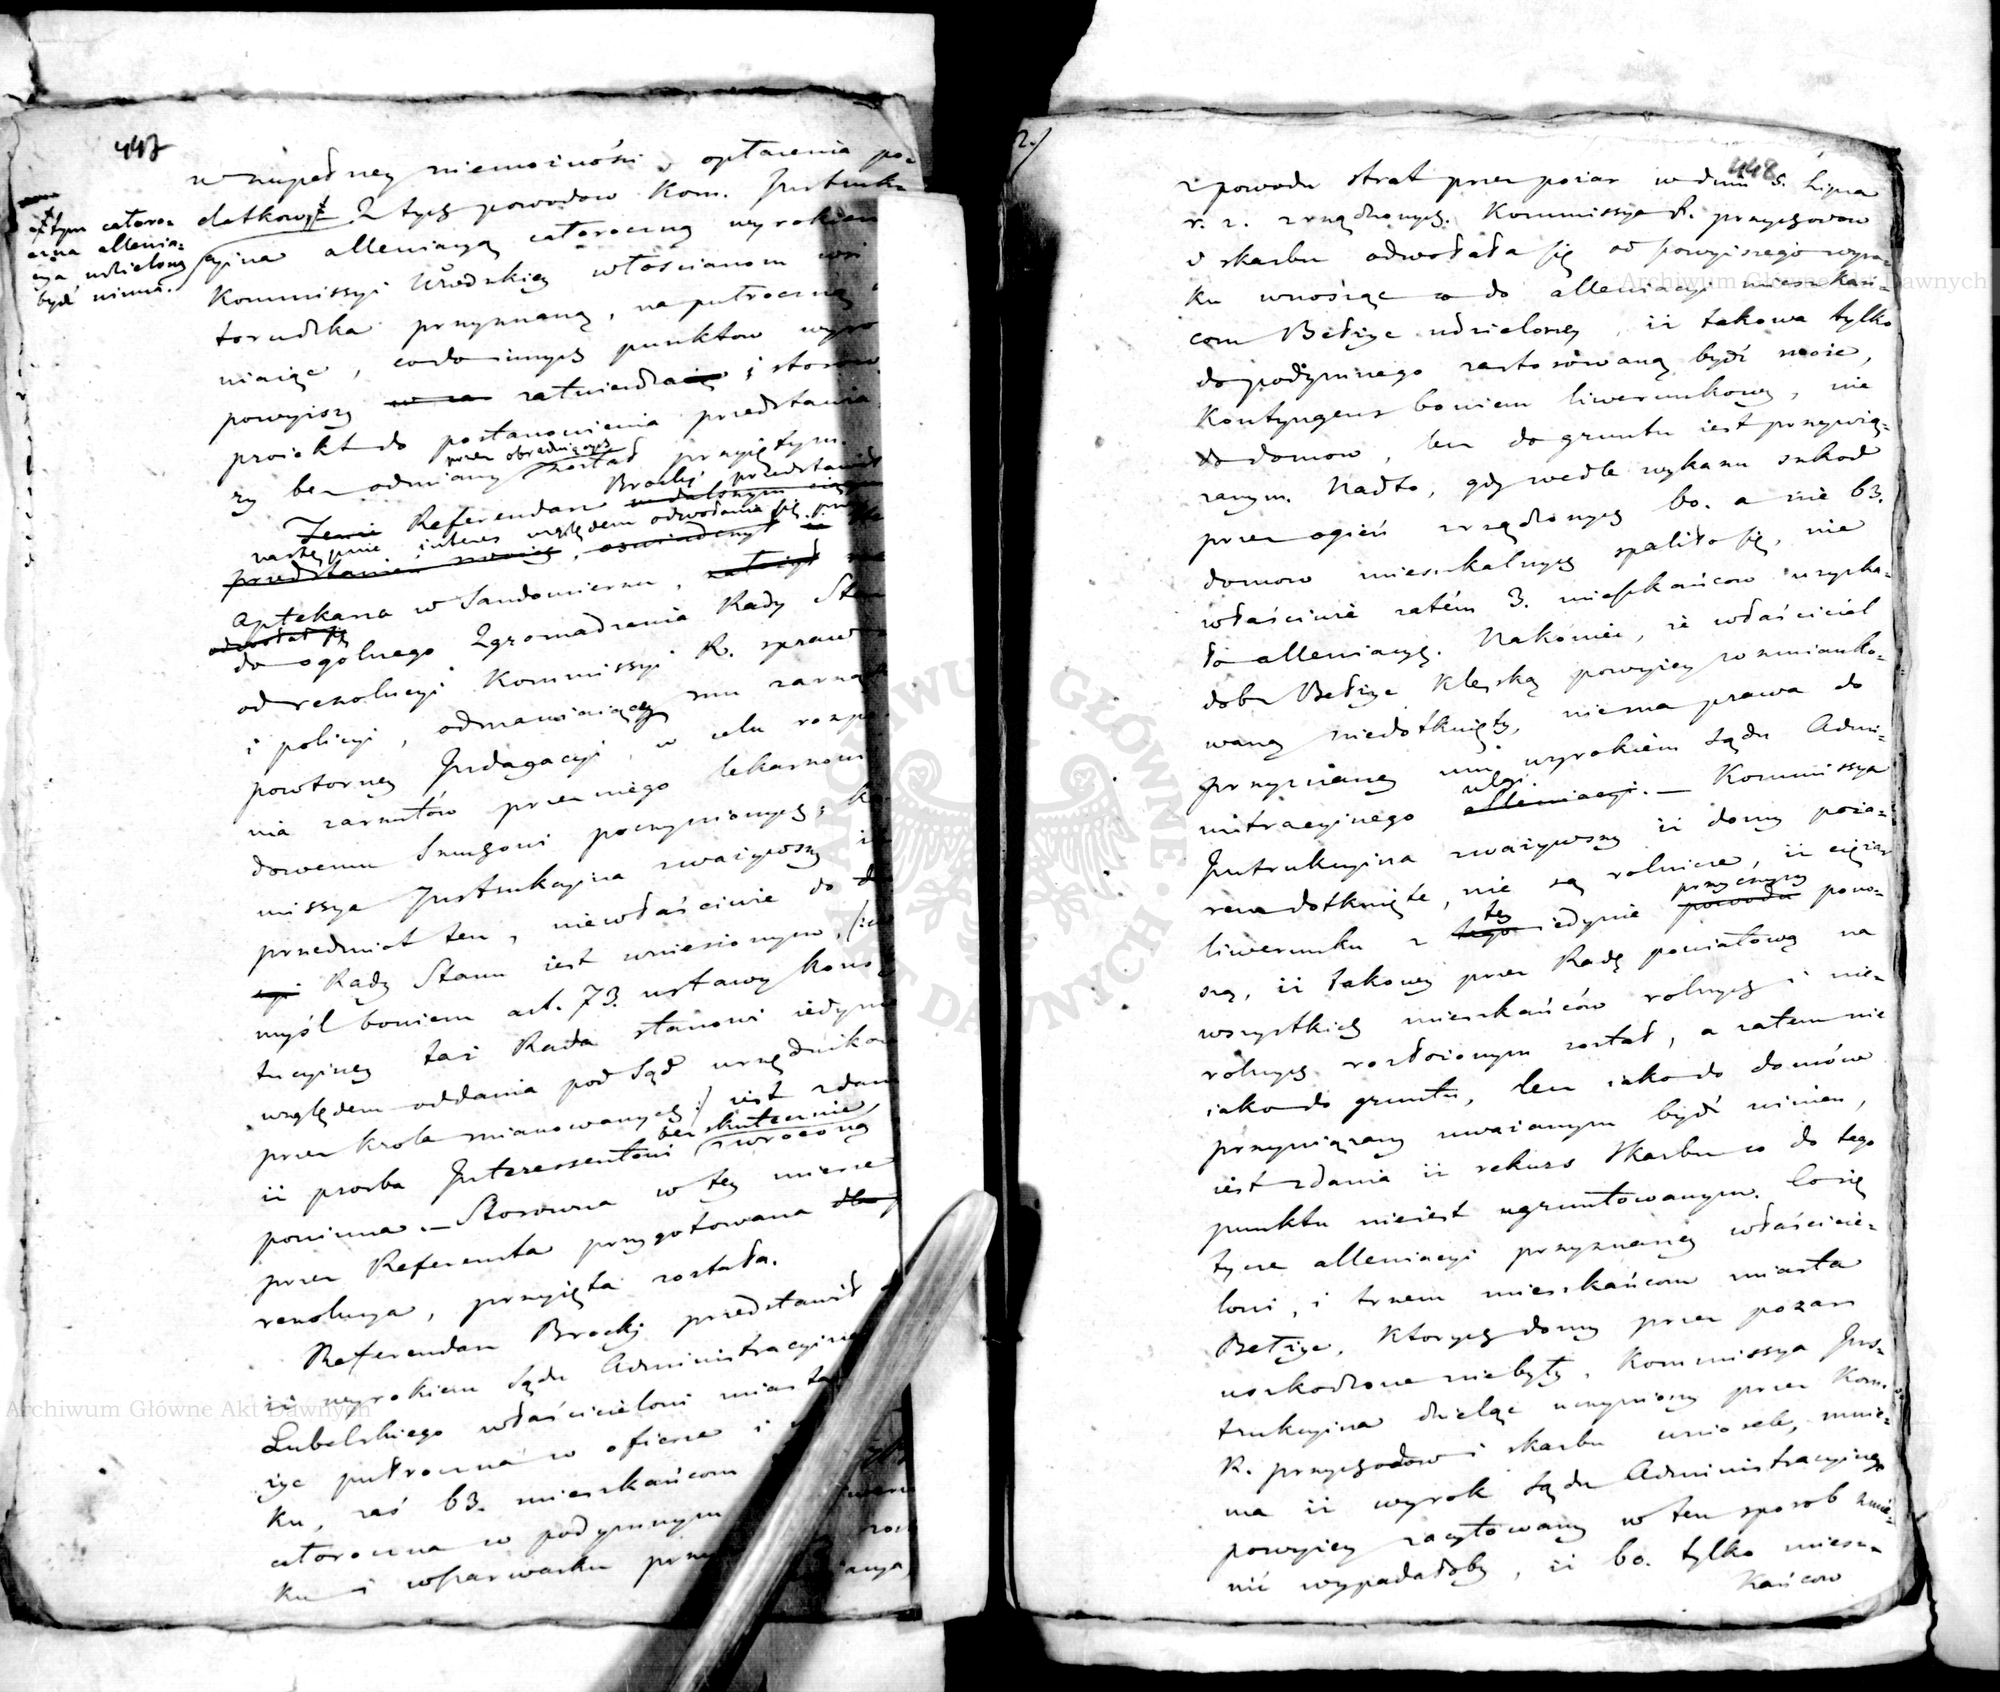 447
w zupełney niemożności opłacenia po-
datkow, Z tych powodow Kom. Instruk-
cyina allewiacyą całoroczną wyrokiem
Kommissyi Wwdzkiey włościanom wsi
toruska przyznaną, na pułroczną
niaiąc, co do innych punktow wyro
powyższy zatwierdza i stosow
proiekt do postanowienia przedstawia
ry bez odmiany przez obradujących został przyiętym.
z tym całoro-
czna allewia-
cya udzieloną
bydź winna.
Referendarz Brocki przedstawił
następnie interes względem odwołania się
przedstawień, oświadczył iż
Aptekarza w Sandomierzu, założył
odwołał się
do ogolnego Zgromadzenia Rady Stan
od rezolucyi Kommissyi R. spraw
i policyi, odmawiaiącey mu zarzą
powtorney Indagacyi, w celu rozpo
nia zarzutów przez niego lekarzowi
dowemu Szuchowi poczynionych; Ko
missya Instrukcyina zważywszy iż
przedmiot ten, niewłaściwie do
Rady Stanu iest wniesionym, (:w
myśl bowiem art. 73. ustawy konst
tucyiney taż Rada stanowi iedynie
względem oddania pod Sąd urzędnikow
przez krola mianowanych:) iest zdani
iż prosba Interessentowi bezskutecznie zwróconą
powinna. — Stosowna w tey mierze
przez Referenta przygotowana
rezolucya, przyięta została.
Referendarz Brocki przedstawił
iż wyrokiem Sądu Administracyine
Lubelskiego właścicielowi miasta
życ pułroczna w ofierze i
ku, zaś 63. mieszkańcom
całoroczna w podymnym
ku i w szarwarku przy
2./
448
z powodu strat przez pożar w dniu 5. Lipca
r. z. zrządzonych. Kommissya R. przychodow
i skarbu odwołała się od powyższego wyro-
ku wnosząc co do allewiacyi mieszkań-
com Bełżyc udzieloney, iż takowa tylko
do podymnego zastosówaną bydź może,
Kontyngens bowiem liwerunkowy, nie
do domow, lecz do gruntu iest przywią-
zanym. Nadto, gdy wedle wykazu szkod
przez ogień zrządzonych 60. a nie 63.
domow mieszkalnych spaliło się, nie
właściwie zatém 3. mieszkańcow uzyska-
ło allewiacyą. Nakoniec, że właściciel
dobr Bełżyc klęską powyżey wzmianko-
waną niedotknięty, niema prawa do
przyznaney mu wyrokiem Sądu Admi-
nistracyinego allewiacyi ulgi. — Kommissya
Instrukcyina zważywszy iż domy poża-
rem dotknięte, nie są rolnicze, iż ciężar
liwerunku z tego tey iedynie powodu przyczyny pono-
szą, iż takowy przez Radę powiatową na
wszystkich mieszkańców rolnych i nie-
rolnych rozłożonym został, a zatem nie
iako do gruntu, lecz iako do domów
przywiązany uważanym bydź winien,
iest zdania iż rekurs Skarbu co do tego
punktu nieiest ugruntowanym. Co się
tycze allewiacyi przyznaney właścicie-
lowi, i trzem mieszkańcom miasta
Bełżyc, ktorych domy przez pożar
uszkodzone niebyły, Kommissya Ins-
trukcyina dzieląc uczyniony przez Kom.
R. przychodow i skarbu wniosek, mnie-
ma iż wyrok Sądu Administracyinego
powyżey zacytowany w ten sposob zmie-
nić wypadałoby, iż 60. tylko miesz-
kańcow